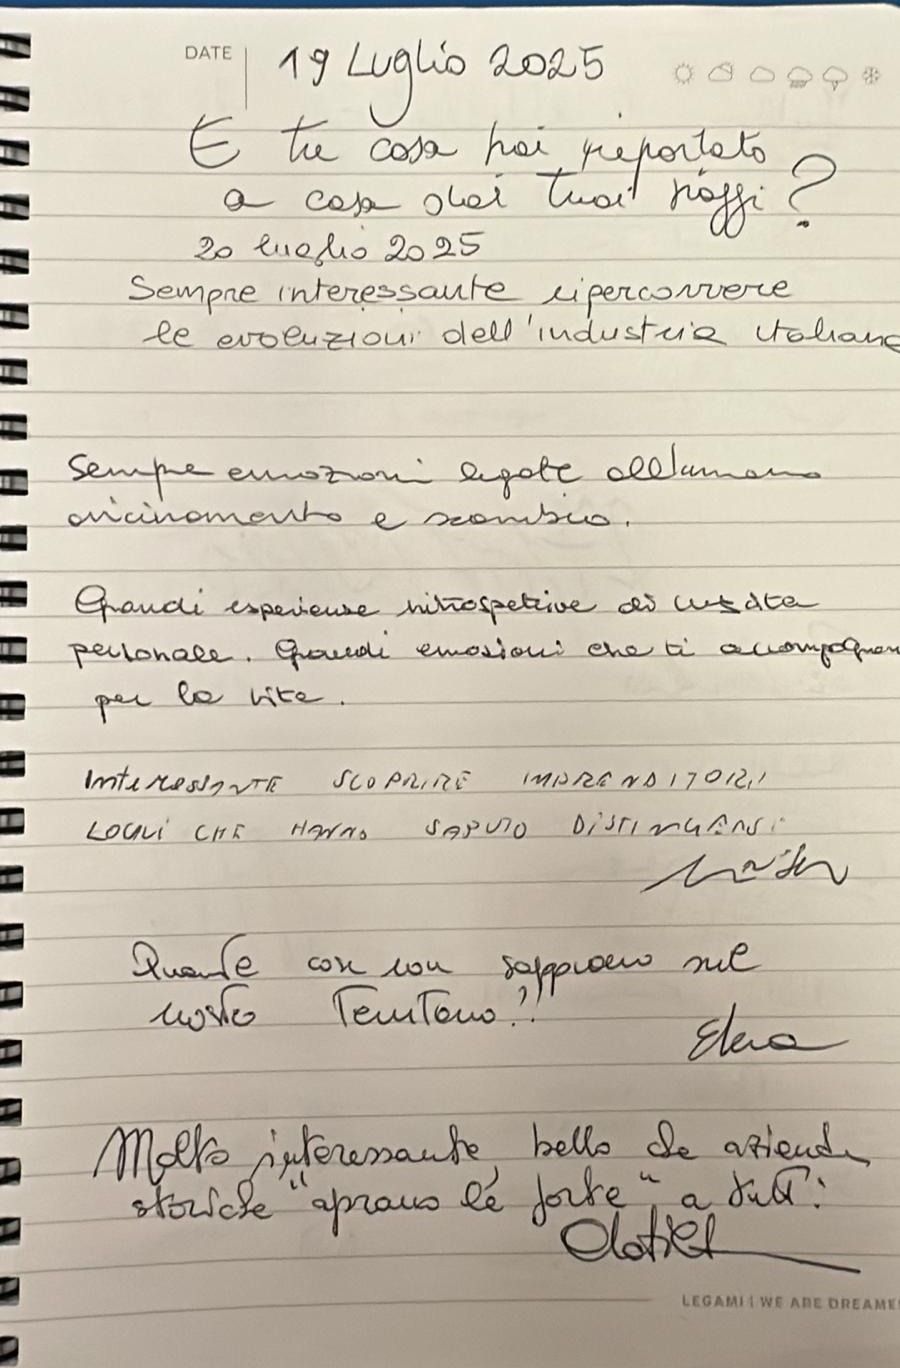 DATE 19 Luglio 2025
E tu cosa hai riportato
a casa dai tuoi viaggi?
20 luglio 2025
Sempre interessante ripercorrere
le evoluzioni dell'industria italiana
Sempre emozioni legate all'umano
avvicinamento e scambio.
Grandi esperienze introspettive di crescita
personale. Grandi emozioni che ti accompagnano
per la vita.
INTERESSANTE SCOPRIRE IMPRENDITORI
LOCALI CHE HANNO SAPUTO DISTINGUERSI
Quante cose non sappiamo sul
nostro Territorio!!
Elena
Molto interessante, bello che aziende
storiche "aprano le porte" a tutti
LEGAMI | WE ARE DREAME